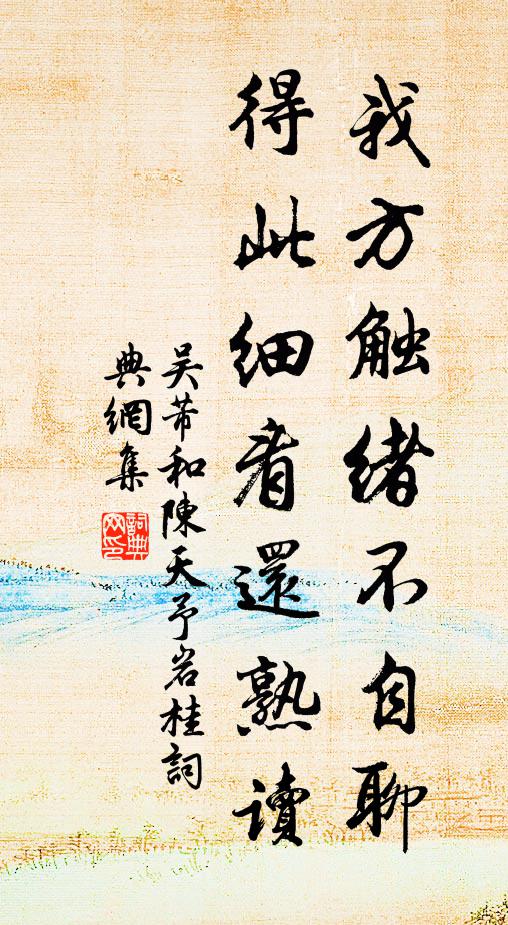 我方触緒不自聊
得此细看還熟讀
吴芾和陳天予岩桂詞
典網集
詞典
网印